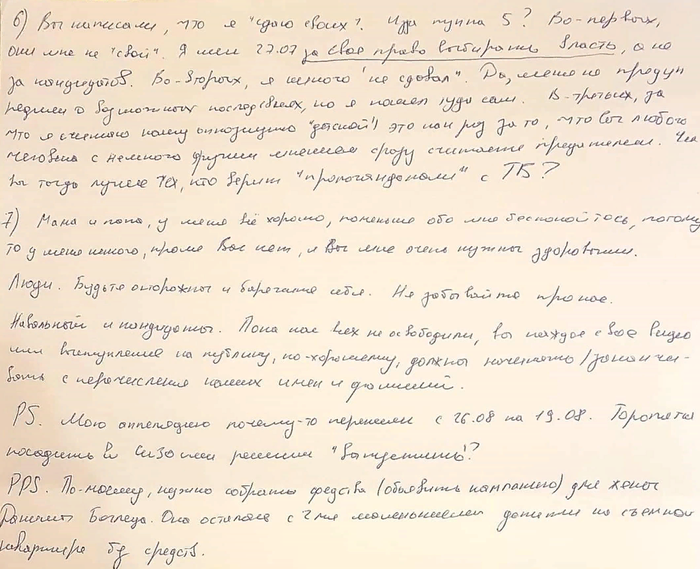 6) Вы написали, что я "сдаю своих". Из-за пункта 5? Во-первых,
они мне не "свои". Я шел 27.07 за свое право выбирать власть, а не
за кандидатов. Во-вторых, я никого не "сдавал". Да, меня не предуп
редили о возможных последствиях, но я пошел туда сам. В-третьих, за
что я считаю нашу оппозицию "детской"! это как раз за то, что вы любого
человека с немного другим мнением сразу считаете предателем. Чем
вы тогда лучше тех, кто верит "пропагандонами" с ТВ?
7) Мама и папа, у меня всё хорошо, поменьше обо мне беспокойтесь, потому
то у меня никого, кроме Вас нет, и Вы мне очень нужны здоровыми.
Люди. Будьте осторожны и берегите себя. Не забывайте про нас.
Навальный и кандидаты. Пока нас всех не освободили, вы каждое свое видео
или выступление на публику, по-хорошему, должны начинать/заканчи-
вать с перечисления наших имен и фамилий.
PS. Мою аппеляцию почему-то перенесли с 26.08 на 19.08. Торопятся
посадить в Сизо или решили "выпустить"?
PPS. По-моему, нужно собрать средства (объявить кампанию) для жены
Даниила Беглеца. Она осталась с 2мя маленькими детьми на съемной
квартире без средств.